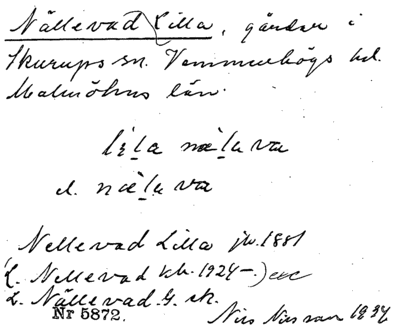 Nällevad Lilla, gårdar i
Skurups sn. Vemmenhögs hd.
Malmöhus län.
lila næluva
el. næluva
Nellevad Lilla jb. 1881
L. Nellevad kb. 1924-
L. Nällevad G. sk.
Nr 5872.
Nils Nilsson 1934